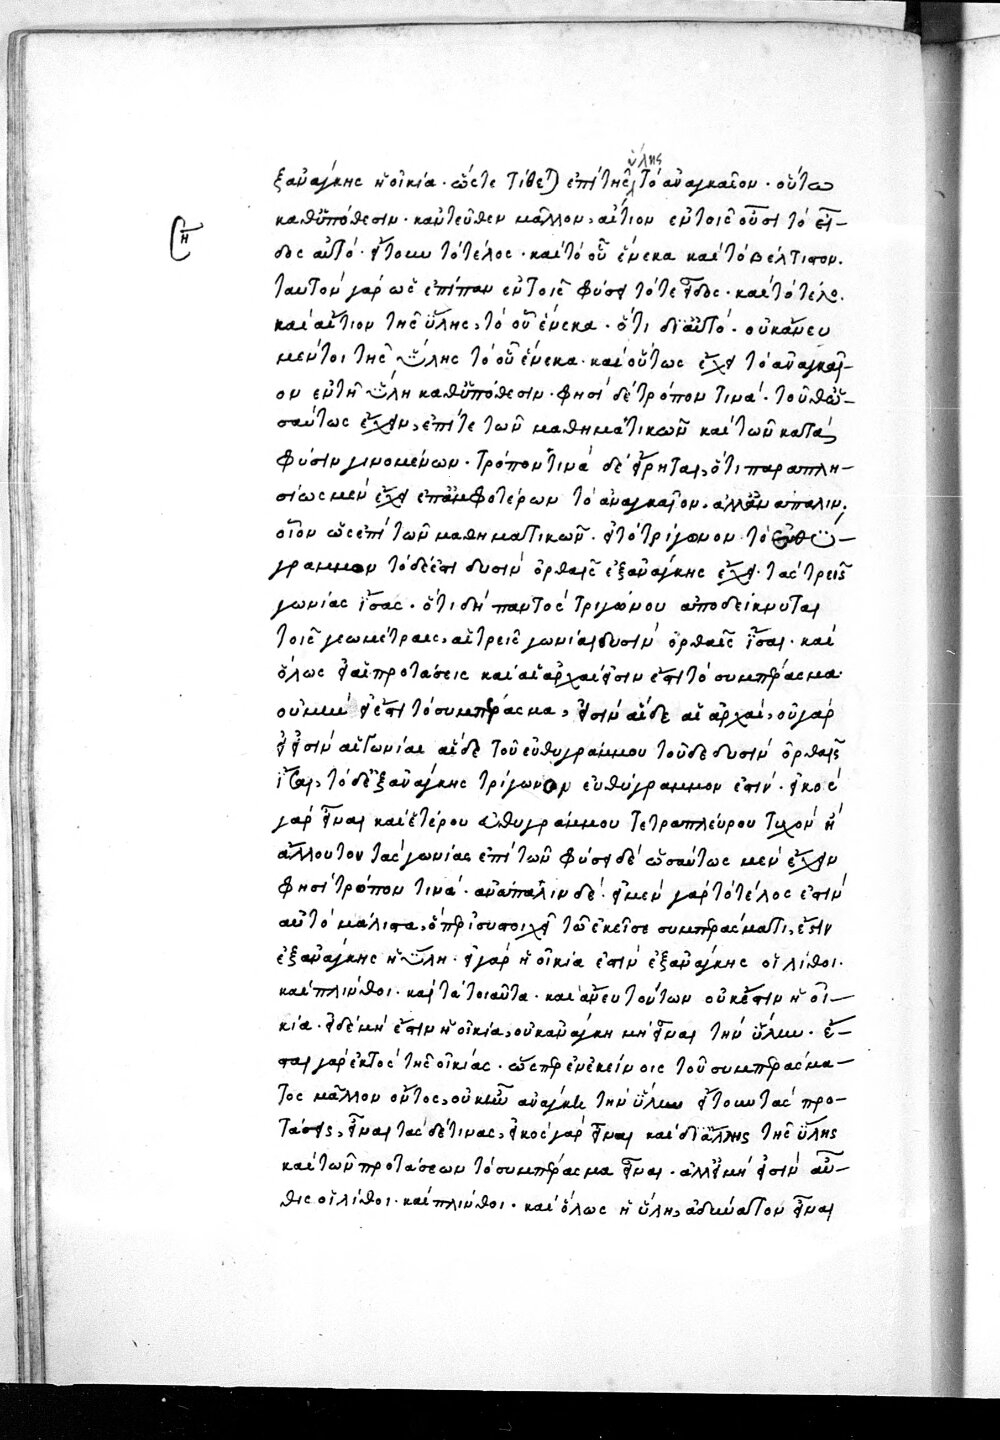 ὕλης
ξανάγκης ἡ οἰκία · ὥστε τίθεται ἐπὶ τῆς τὸ ἀναγκαῖον · οὕτω
καθ᾽ ὑπόθεσιν · κἀντεῦθεν μᾶλλον, αἴτιον ἐν τοῖς οὖσι τὸ εἶ-
δος αὐτὸ · ἤτοι τὸ τέλος · καὶ τὸ οὗ ἕνεκα καὶ τὸ βέλτιστον.
ταυτὸν γὰρ ὡς ἐπίπαν ἐν τοῖς φύσει τότε εἶδος · καὶ τὸ τέλος.
καὶ αἴτιον τῆς ὕλης, τὸ οὗ ἕνεκα · ὅτι δι᾽ αὐτὸ · οὐκ ἄνευ
μέντοι τῆς ὕλης τὸ οὗ ἕνεκα · καὶ οὕτως ἔχει τὸ ἀναγκαῖ-
ον ἐν τῇ ὕλῃ καθ᾽ ὑπόθεσιν · φησὶ δὲ τρόπον τινὰ · τοῦθ᾽ ὡ-
σαύτως ἔχειν, ἐπί τε τῶν μαθηματικῶν καὶ τῶν κατὰ
φύσιν γινομένων · τρόπον τινὰ δὲ εἴρηται, ὅτι παραπλη-
σίως μὲν ἔχει ἐπ᾽ ἀμφοτέρων τὸ ἀναγκαῖον, ἀλλ᾽ ἀνάπαλιν.
οἷον ὡς ἐπὶ τῶν μαθηματικῶν · εἰ τὸ τρίγωνον τὸ εὐθύ-
γραμμον τόδε ἐστὶ δυσὶν ὀρθαῖς ἐξανάγκης ἔχει τὰς τρεῖς
γωνίας ἴσας · ὅτι δὴ παντὸς τριγώνου ἀποδείκνυται
τοῖς γεωμέτραις, αἱ τρεῖς γωνίαι δυσὶν ὀρθαῖς ἴσαι · καὶ
ὅλως εἰ αἱ προτάσεις καὶ αἱ ἀρχαὶ εἰσὶν ἔστι τὸ συμπέρασμα·
οὐ μὴν εἰ ἔστι τὸ συμπέρασμα, εἰσὶν αἵδε αἱ ἀρχαί, οὐ γὰρ
εἰ εἰσὶν αἱ γωνίαι αἵδε τοῦ εὐθυγράμμου τοῦδε δυσὶν ὀρθαῖς
ἴσαι, τόδε ἐξανάγκης τρίγωνον εὐθύγραμμον ἐστίν · εἰκὸς
γὰρ εἶναι καὶ ἑτέρου εὐθυγράμμου τετραπλεύρου τυχὸν ἢ
ἄλλου τὰς γωνίας ἐπὶ τῶν φύσει δὲ ὡσαύτως μὲν ἔχειν
φησὶ τρόπον τινὰ · ἀνάπαλιν δὲ · εἰ μὲν γὰρ τὸ τέλος ἐστὶν
αὐτὸ μάλιστα, ὅπερ συστοιχεῖ τῷ ἐκεῖσε συμπεράσματι, ἔστιν
ἐξανάγκης ἡ ὕλη · εἰ γὰρ ἡ οἰκία ἐστὶν ἐξανάγκης οἱ λίθοι ·
καὶ πλίνθοι · καὶ τὰ τοιαῦτα · καὶ ἄνευ τούτων οὐκ ἔστιν ἡ οἰ-
κία · εἰ δὲ μὴ ἔστιν ἡ οἰκία, οὐκ ἀνάγκη μὴ εἶναι τὴν ὕλην · ἔ-
σται γὰρ ἐκτὸς τῆς οἰκίας · ὥσπερ ἐν ἐκείνοις τοῦ συμπεράσμα-
τος μᾶλλον ὄντος, οὐκ ἦν ἀνάγκη τὴν ὕλην ἤτοι τὰς προ-
τάσεις, εἶναι τάς δέ τινας, εἰκὸς γὰρ εἶναι καὶ δι᾽ ἄλλης τῆς ὕλης
καὶ τῶν προτάσεων τὸ συμπέρασμα εἶναι · ἀλλ᾽ εἰ μὴ εἰσὶν αὖ-
θις οἱ λίθοι · καὶ πλίνθοι · καὶ ὅλως ἡ ὕλη, ἀδύνατον εἶναι